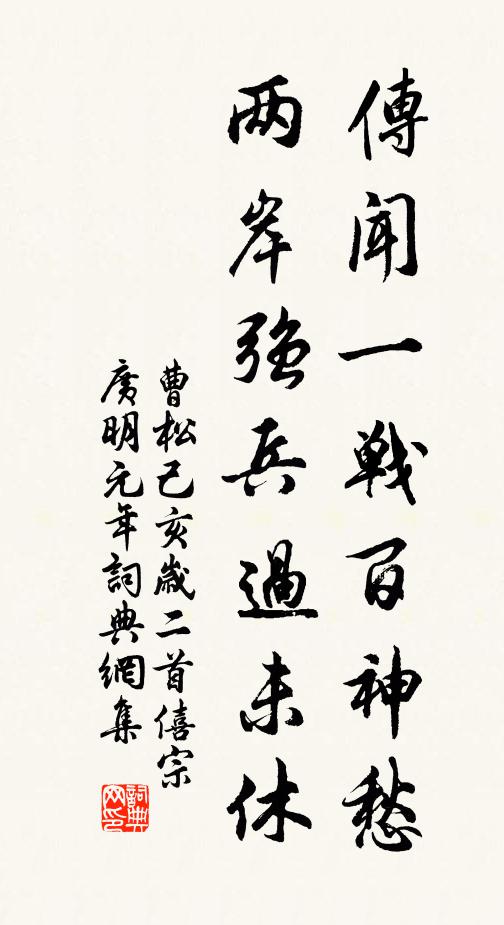 傳聞一戦百神愁
两岸強兵過未休
曹松己亥歲二首僖宗
廣明元年詞典網集
詞典网印